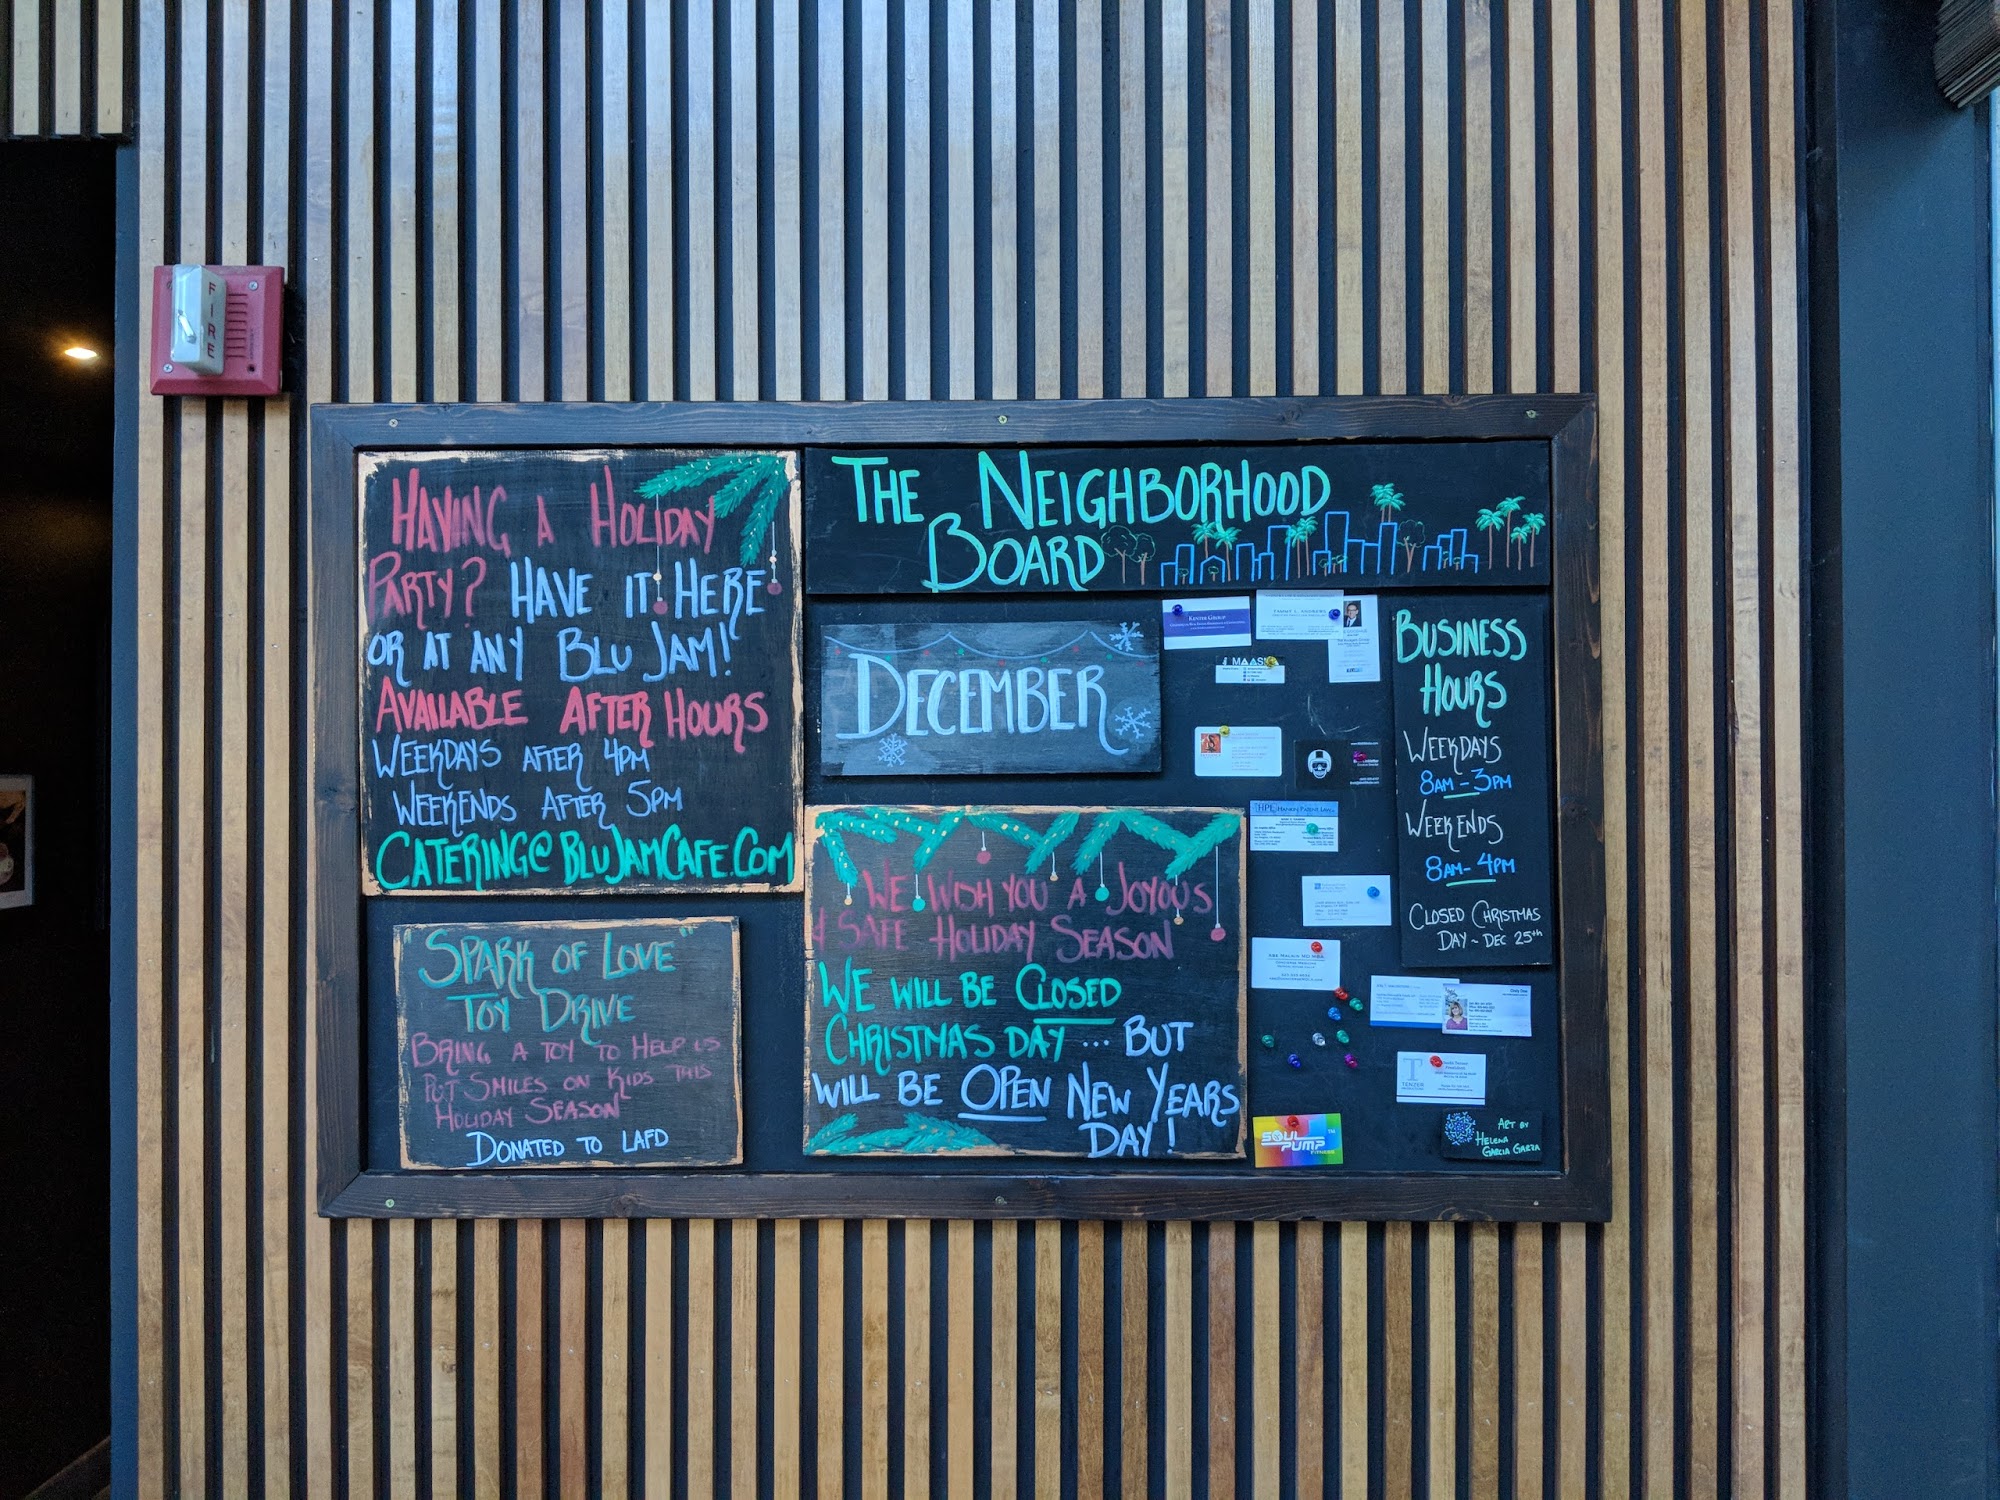 FIRE
HAVING A HOLIDAY
PARTY? HAVE IT HERE
OR AT ANY BLU JAM!
AVAILABLE AFTER HOURS
WEEKDAYS AFTER 4PM
WEEKENDS AFTER 5PM
CATERING@BLUJAMCAFE.COM
"SPARK OF LOVE"
TOY DRIVE
BRING A TOY TO HELP US
PUT SMILES ON KIDS THIS
HOLIDAY SEASON
DONATED TO LAFD
THE NEIGHBORHOOD
BOARD
DECEMBER
WE WISH YOU A JOYOUS
& SAFE HOLIDAY SEASON
WE WILL BE CLOSED
CHRISTMAS DAY ... BUT
WILL BE OPEN NEW YEARS
DAY!
KENTER GROUP
TAMMY L. ANDREWS
HPL HANKIN PATENT LAW
ABE MALKIN MD MBA
T
TENZER
SOUL
PUMP™
FITNESS
BUSINESS
HOURS
WEEKDAYS
8AM - 3PM
WEEKENDS
8AM - 4PM
CLOSED CHRISTMAS
DAY ~ DEC 25th
ART BY
HELENA
GARCIA GARZA